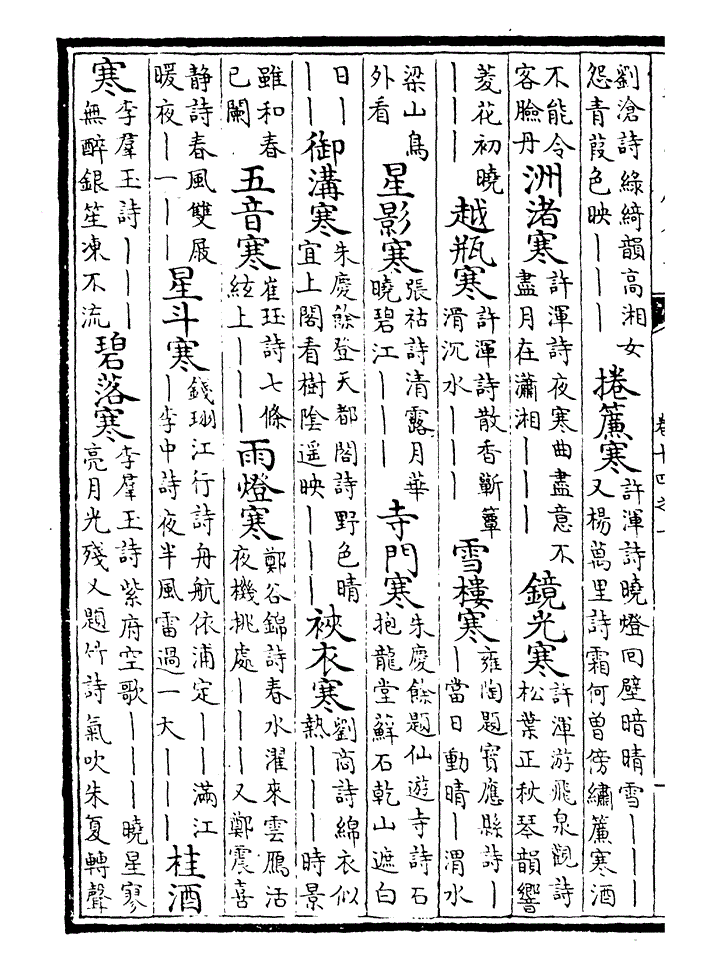 劉滄詩綠綺韻高湘女怨青葭色映｜｜｜捲簾寒許渾詩曉燈回壁暗晴雪｜｜｜又楊萬里詩霜何曾傍繡簾寒酒
不能令客臉丹洲渚寒許渾詩夜寒曲盡意不盡月在瀟湘｜｜｜鏡光寒許渾游飛泉觀詩松葉正秋琴韻響
菱花初曉｜｜｜越瓶寒許渾詩散香蘄簟滑沉水｜｜｜雪樓寒雍陶題寳應縣詩｜｜當日動晴｜渭水
梁山鳥外看星影寒張祜詩清露月華曉碧江｜｜｜寺門寒朱慶餘題仙遊寺詩石抱龍堂蘚石乾山遮白
日｜｜｜御溝寒朱慶餘登天都閣詩野色晴宜上閣看樹陰遥映｜｜｜裌衣寒劉商詩綿衣似熱｜｜｜時景
雖和春已闌五音寒崔珏詩七條絃上｜｜｜雨燈寒鄭谷錦詩春水濯來雲鴈活夜機挑處｜｜｜又鄭震喜
静詩春風雙屐暖夜｜一｜｜星斗寒錢珝江行詩舟航依浦定｜｜滿江｜李中詩夜半風雷過一大｜｜｜桂酒
寒李羣玉詩｜｜｜無醉銀笙凍不流碧落寒李羣玉詩紫府空歌｜｜｜曉星寥亮月光殘又題竹詩氣吹朱夏轉聲